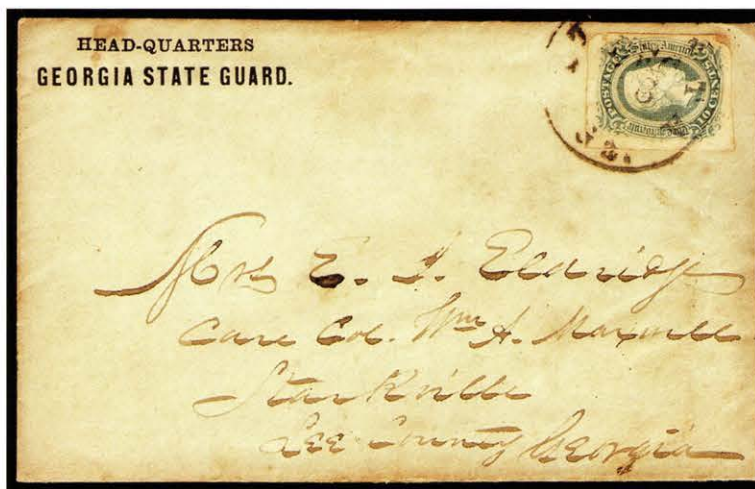 HEAD-QUARTERS
GEORGIA STATE GUARD.
POSTAGE
TEN CENTS
Mrs E. J. Eldridge
Care Col. Wm A. Maxwell
Starkville
Lee County Georgia